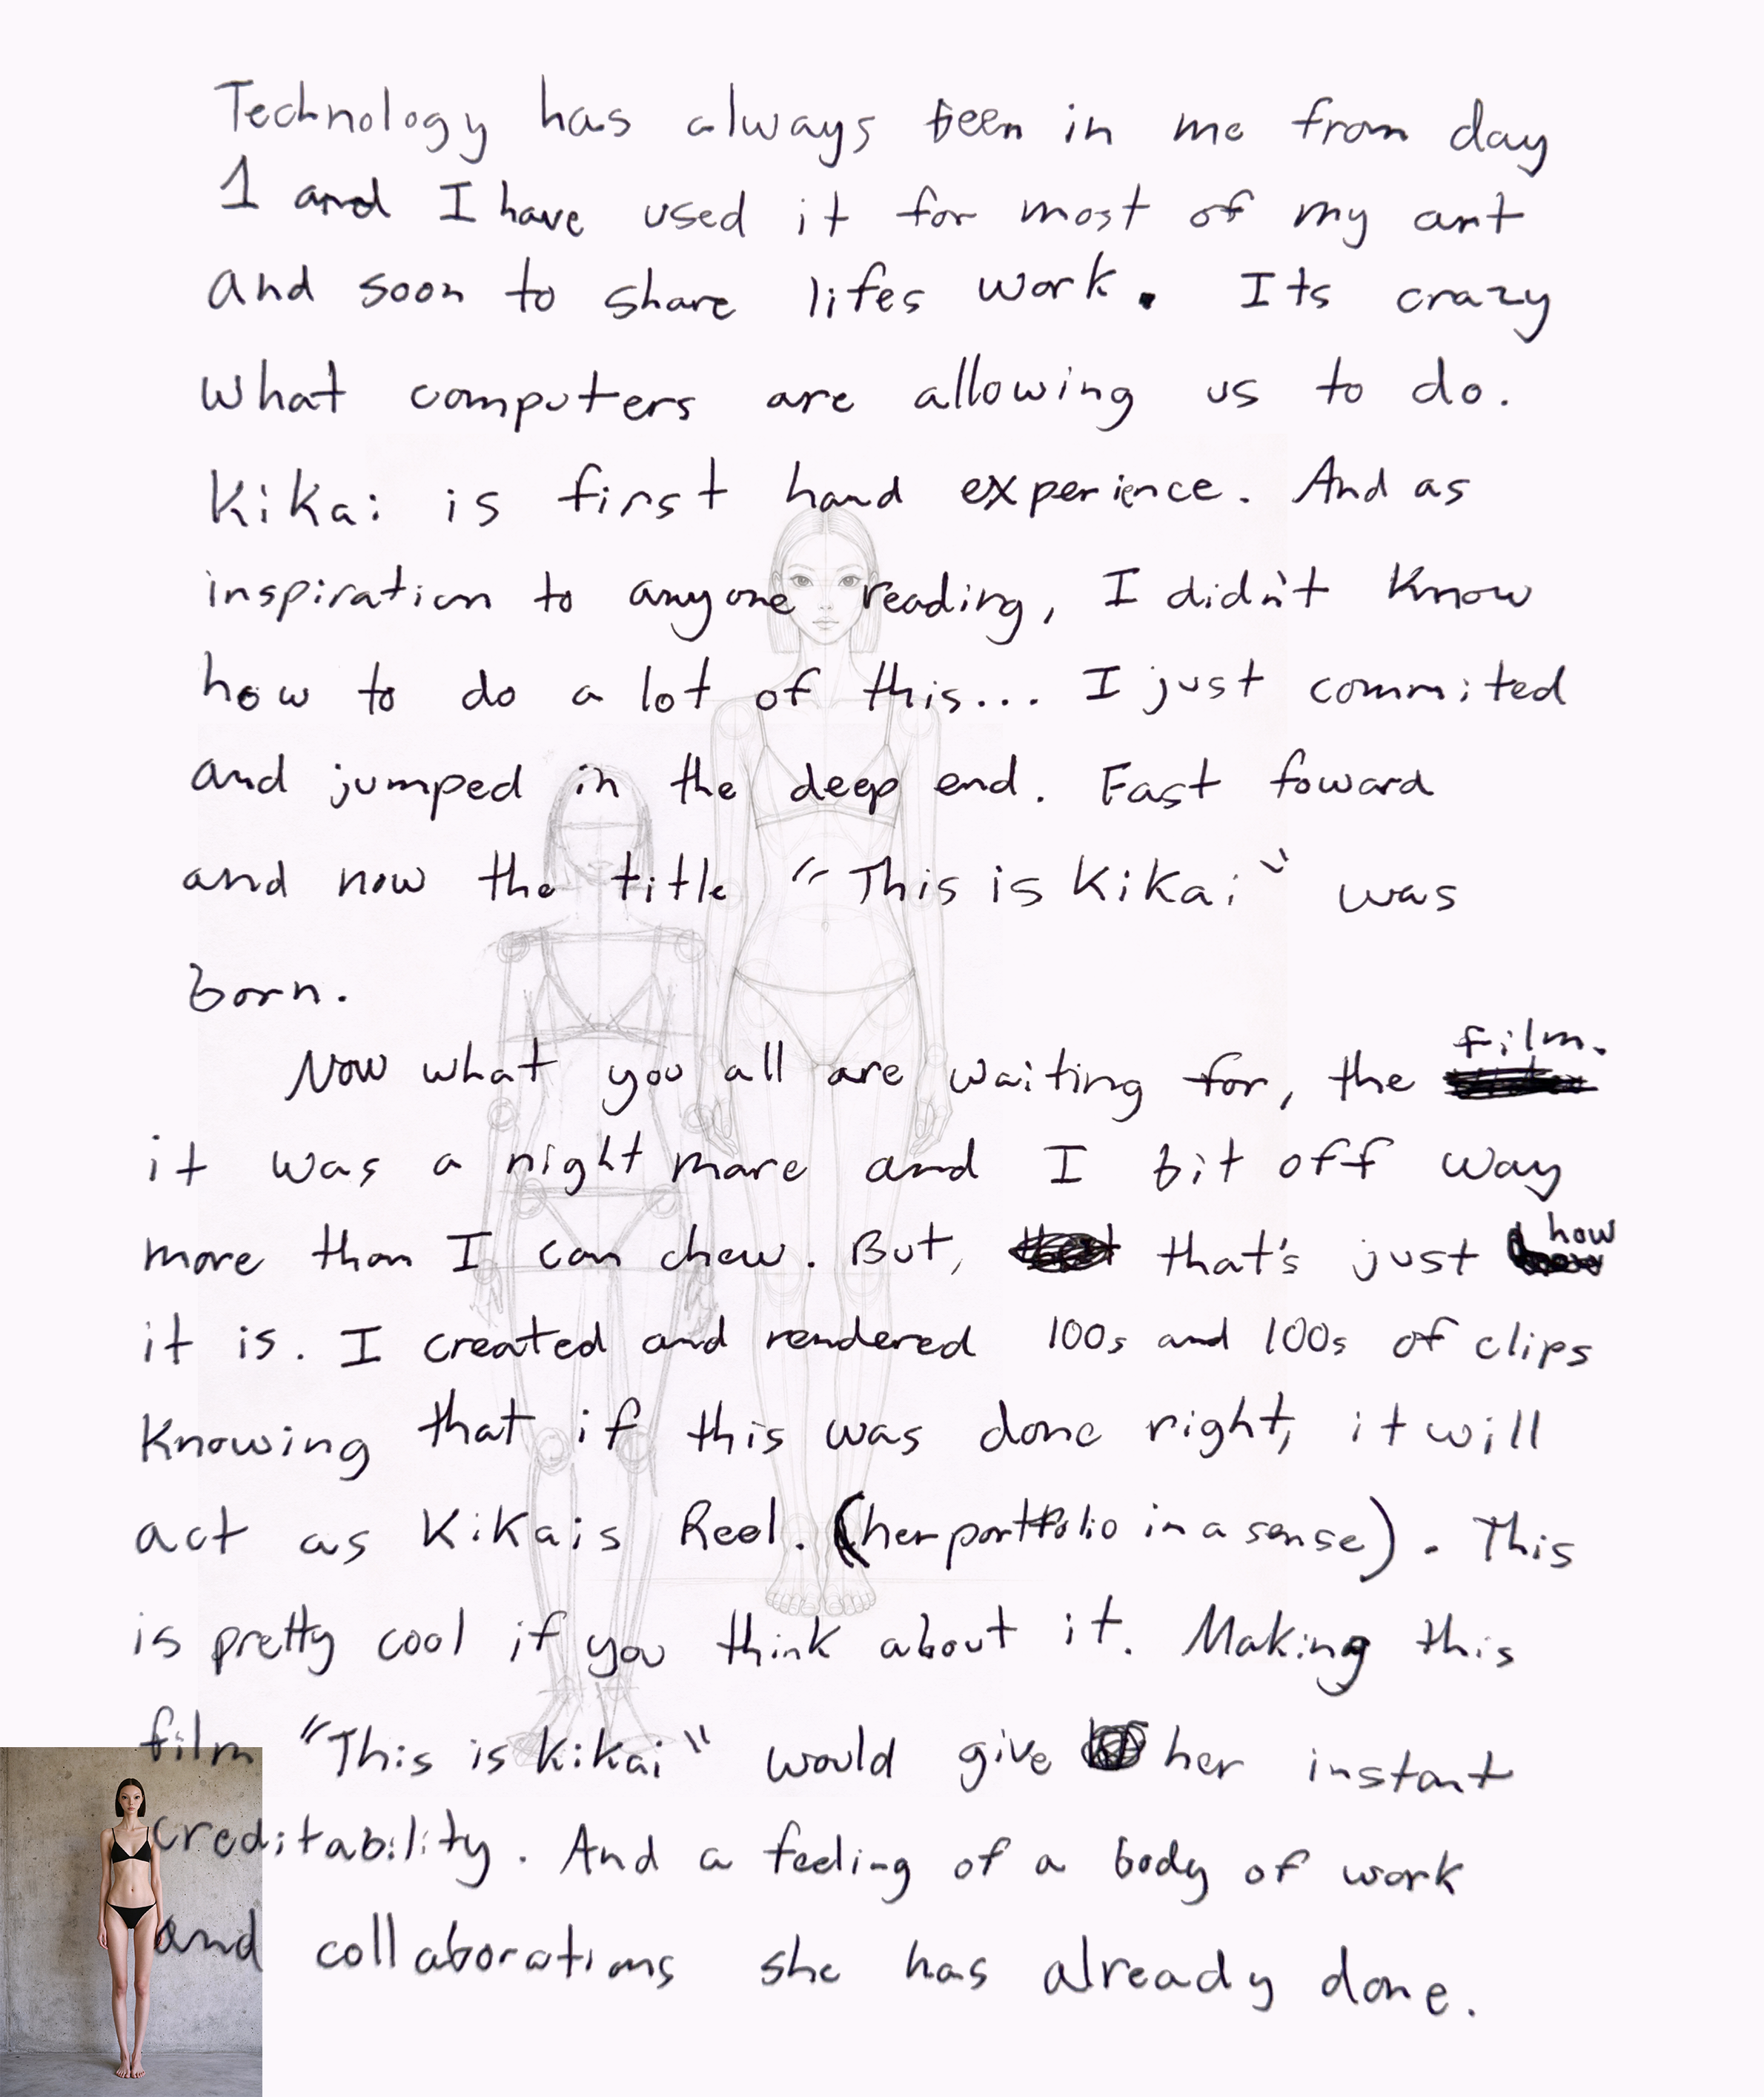 Technology has always been in me from day
1 and I have used it for most of my art
and soon to share lifes work. Its crazy
what computers are allowing us to do.
Kikai is first hand experience. And as
inspiration to anyone reading, I didn't know
how to do a lot of this... I just commited
and jumped in the deep end. Fast foward
and now the title "This is Kikai" was
born.
Now what you all are waiting for, the film.
it was a night mare and I bit off way
more than I can chew. But, that's just how
it is. I created and rendered 100s and 100s of clips
Knowing that if this was done right, it will
act as Kikais Reel. (her portfolio in a sense). This
is pretty cool if you think about it. Making this
film "This is kikai" would give her instant
creditability. And a feeling of a body of work
and collaborations she has already done.